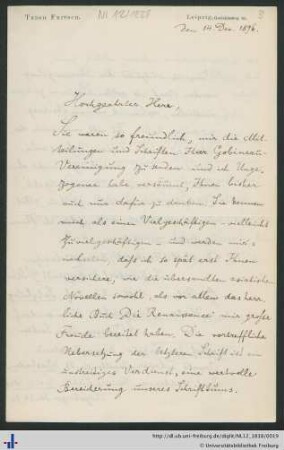 NL 12/1838
3
Theod Fritsch.
Leipzig,
den 14 Dez. 1896.
Hochgeehrter Herr,
Sie waren so freundlich, mir die Mit-
teilungen und Schriften Ihrer Gobineau-
Vereinigung zu senden und ich Unge-
zogener habe versäumt, Ihnen bisher
auch nur dafür zu danken. Sie kennen
mich als einen Vielgeschäftigen – vielleicht
Zuvielgeschäftigen – und werden mir
, daß ich so spät erst Ihnen
versichere, wie die übersandten asiatischen
Novellen sowohl, als vor allem das herr-
liche Buch „Die Renaissance" mir große
Freude bereitet haben. Die vortreffliche
Uebersetzung der letzteren Schrift ist ein
Verdienst, eine wertvolle
Bereicherung unseres Schrifttums.
http://dl.ub.uni-freiburg.de/diglit/NL12_1838/0019
© Universitätsbibliothek Freiburg